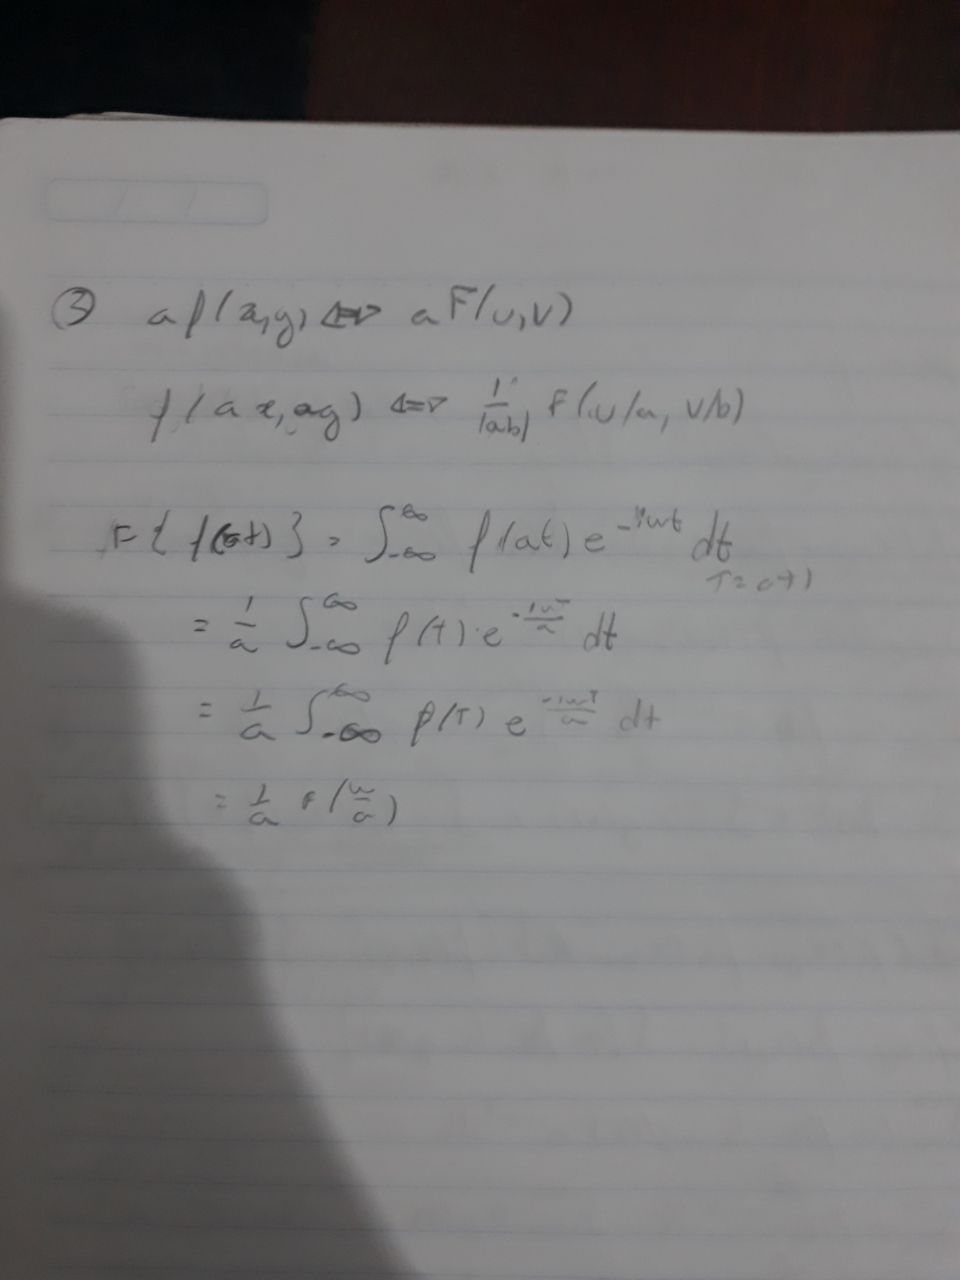 ③ a f(x,y) ⇔ a F(u,v)
f(ax,ay) ⇔ 1/|ab| F(u/a, v/b)
F{f(at)} = ∫_{-∞}^{∞} f(at) e^{-iwt} dt
= 1/a ∫_{-∞}^{∞} f(t) · e^{-iwT/a} dt
= 1/a ∫_{-∞}^{∞} f(T) e^{-iwT/a} dt
= 1/a F(w/a)